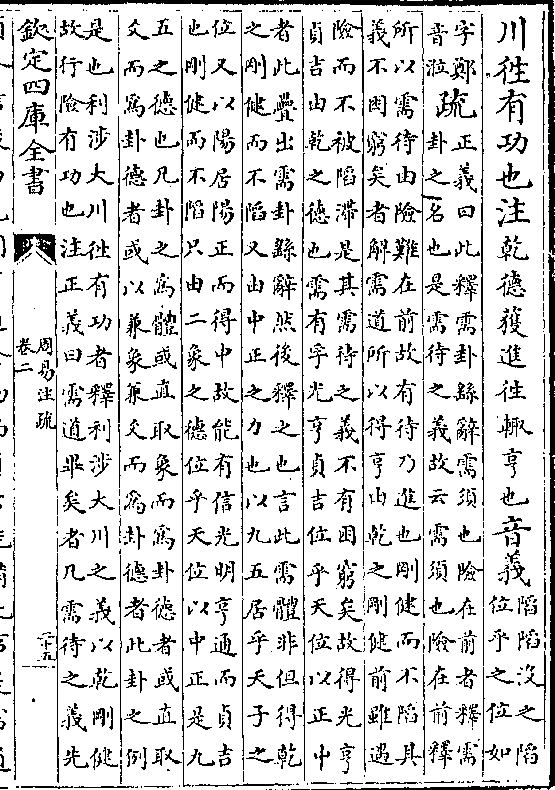 川徃有功也注乾德獲進徃輙亨也音義陷陷沒之陷
位乎之位如
字鄭
音涖疏正義曰此釋需卦繇辭需須也險在前者釋需
卦之名也是需待之義故云需須也險在前釋
所以需待由險難在前故有待乃進也剛健而不陷其
義不困窮矣者解需道所以得亨由乾之剛健前雖遇
險而不被陷滯是其需待之義不有困窮矣故得光亨
貞吉由乾之德也需有孚光亨貞吉位乎天位以正中
者此疊出需卦繇辭然後釋之也言此需體非但得乾
之剛健而不陷又由中正之力也以九五居乎天子之
位又以陽居陽正而得中故能有信光明亨通而貞吉
也剛健而不陷只由二象之德位乎天位以中正是九
五之德也凡卦之為體或直取象而為卦德者或直取
爻而為卦德者或以兼象兼爻而為卦德者此卦之例
是也利涉大川徃有功者釋利涉大川之義以乾剛健
故行險有功也注正義曰需道畢矣者凡需待之義先
欽定四庫全書
周易注疏
卷二
二十五